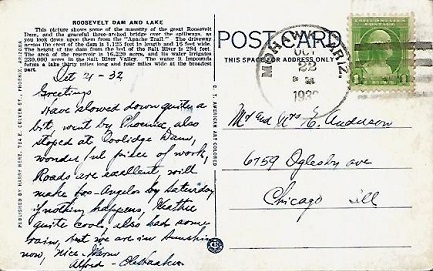 ROOSEVELT DAM AND LAKE
This picture shows some of the masonry of the great Roosevelt
Dam, and the graceful three-arched bridge over the spillways, as
you look down upon them from the "Apache Trail". The driveway
across the crest of the dam is 1,125 feet in length and 16 feet wide.
The height of the dam from the bed of the Salt River is 284 feet.
The area of the reservoir is 16,320 acres, and its water irrigates
220,000 acres in the Salt River Valley. The water it impounds
forms a lake thirty miles long and four miles wide at the broadest
part.
Oct 21-32
Greetings
Have slowed down quite a
bit, went by Phoenix, also
stoped at Coolidge Dam,
wonderful piece of work,
Roads are excellent, will
make Los-Angelos by Saturday
if nothing happens, Weather
quite cool, also had some
rain, but we are in Sunshine
now, nice. Warm
Alford
PUBLISHED BY HARRY HERZ, PHOENIX, ARIZONA
C. T. AMERICAN ART COLORED
POST CARD
THIS SPACE FOR ADDRESS ONLY
ARIZ.
OCT
22
Mr and Mrs E. Anderson
6759 Oglesby ave
Chicago Ill